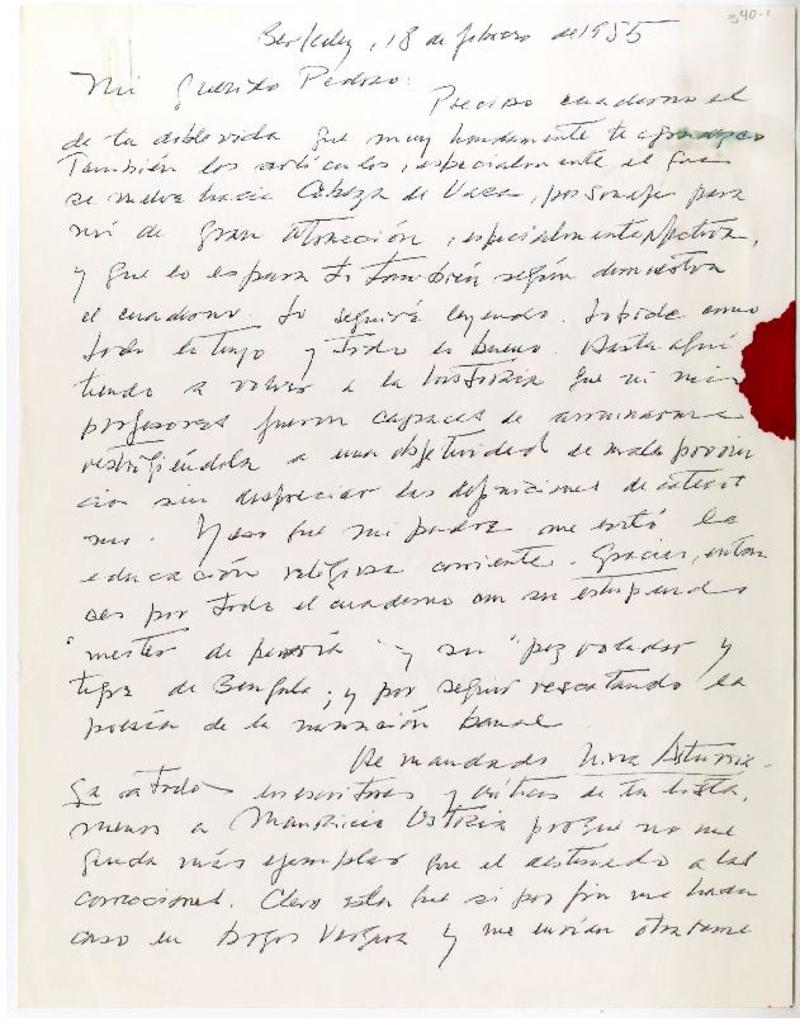 Berkeley, 18 de febrero de 1955
340-1
Mi Querido Pedro:
Precioso cuaderno el
de tu doble vida que muy hondamente te agradezco
También los artículos, especialmente el que
se mueve hacia Cabeza de Vaca, personaje para
mí de gran atracción, especialmente afectiva,
y que lo es para ti también según demuestra
el cuaderno. Lo seguiré leyendo. como
todo lo tuyo y todo es bueno. Hasta aquí
tiendo a volver a la historia que ni mis
profesores fueron capaces de arruinarme
restrigiéndola a una objetividad de mala
sin despreciar las definiciones de
mo. Y eso que mi padre me evitó la
educación religiosa corriente. Gracias, enton
ces por todo el cuaderno con su estupendo
"mester de " y su "pez volador y
tigre de Bengala; y por seguir rescatando la
poesía de la narración banal.
He mandado Nina Asturia-
ga a todos los escritores y críticos de tu lista,
menos a Mauricio Ostria porque no me
queda más ejemplar que el destinado a las
correcciones. Claro esta que si por fin me hacen
caso en Vergara y me envían otra